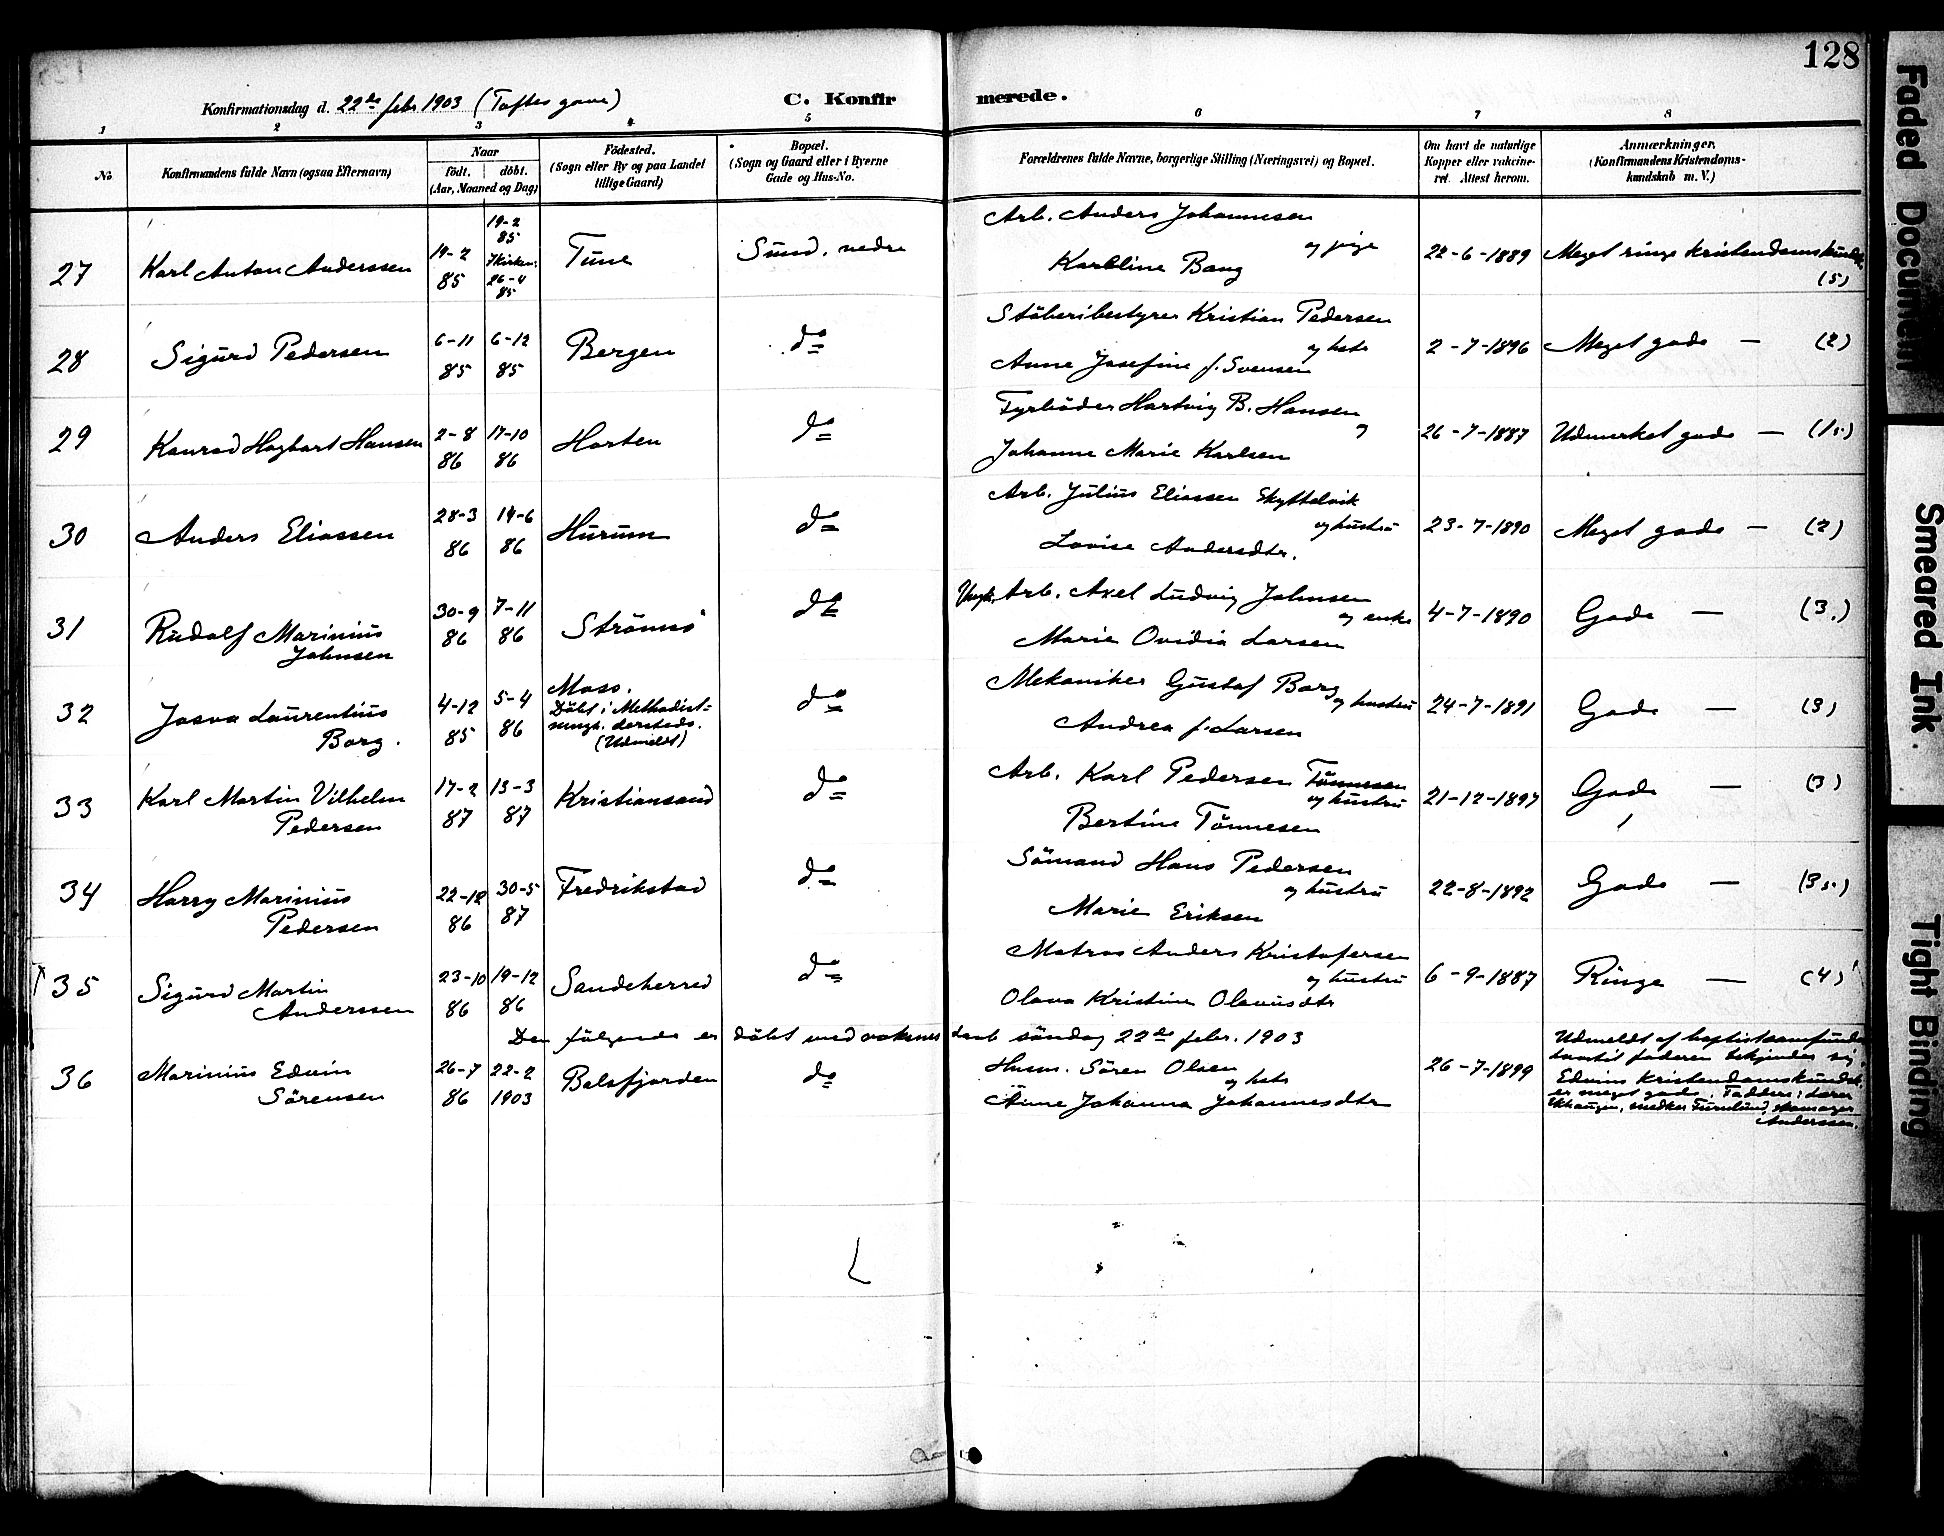 128
Konfirmationsdag d. 22de febr 1903 (Toftes gave)
C. Konfirmerede.
1 2 3 4 5 6 7 8
No
Konfirmandens fulde Navn (ogsaa Efternavn)
Naar
födt. döbt.
(Aar, Maaned og Dag)
Födested.
(Sogn eller By og paa Landet
tillige Gaard)
Bopæl.
(Sogn og Gaard eller i Byerne
Gade og Hus-No.
Forældrenes fulde Navne, borgerlige Stilling (Næringsvei) og Bopæl.
Om havt de naturlige
Kopper eller vakcine-
ret. Attest herom.
Anmærkninger.
(Konfirmandens Kristendoms-
kundskab m. V.)
27 Karl Anton Anderssen 19-2 85 19-2 85 Ikirken: 26-4 85 Tune Sund, nedre
Arb. Anders Johannesen
og pige
Karoline Bang
22-6-1889 Meget ringe kristendomskundsk.
(5)
28 Sigurd Pedersen 6-11 85 6-12 85 Bergen do
Stöberibestyrer Kristian Pedersen
og hstr
Anne Josefine f. Svensen
2-7-1896 Meget gode — (2)
29 Konrad Hagbart Hansen 2-8 86 17-10 86 Horten do
Fyrböder Hartvig B. Hansen
og
Johanne Marie Karlsen
26-7-1887 Udmerket gode — (1.5.)
30 Anders Eliassen 28-3 86 14-6 86 Hurum do
Arb. Julius Eliassen Skyttelvik
og hustru
Lovise Andersdtr.
23-7-1890 Meget gode — (2)
31 Rudolf Marinius
Johnsen 30-9 86 7-11 86 Strömsö do
Ungk. Arb. Axel Ludvig Johnsen
og enke
Marie Ovidia Larsen
4-7-1890 Gode — (3.)
32 Josva Laurentius
Borg. 4-12 85 5-4 86 Moss.
Döbt i Methodist-
mngh. dersteds.
(Udmeldt) do
Mekaniker Gustaf Borg
og hustru
Andrea f. Larsen
24-7-1891 Gode — (3)
33 Karl Martin Vilhelm
Pedersen 17-2 87 13-3 87 Kristiansand do
Arb. Karl Pedersen Tönnesen
og hustru
Bertine Tönnesen
21-12-1897 Gode — (3)
34 Harry Marinius
Pedersen 22-12 86 30-5 87 Fredrikstad do
Sömand Hans Pedersen
og hustru
Marie Eriksen
22-8-1892 Gode — (3.5.)
35 Sigurd Martin
Anderssen 23-10 86 19-12 86 Sandeherred do
Matros Anders Kristofersen
og hustru
Olava Kristine Olavusdtr
6-9-1887 Ringe — (4)
Den fölgende er döbt med voksnes daab söndag 22de febr. 1903
36 Marinius Edvin
Sörensen 26-7 86 22-2 1903 Balsfjorden do
Husm. Sören Olsen
og hstr
Anne Johanna Johannesdtr
26-7-1899
Udmeldt af baptistsamfundet
hvortil faderen bekjender sig.
Edvins kristendomskundsk.
er meget gode. Faddere: Lærer
snedker Furulund, skomager
Anderssen.
Faded Document
Smeared Ink.
Tight Binding